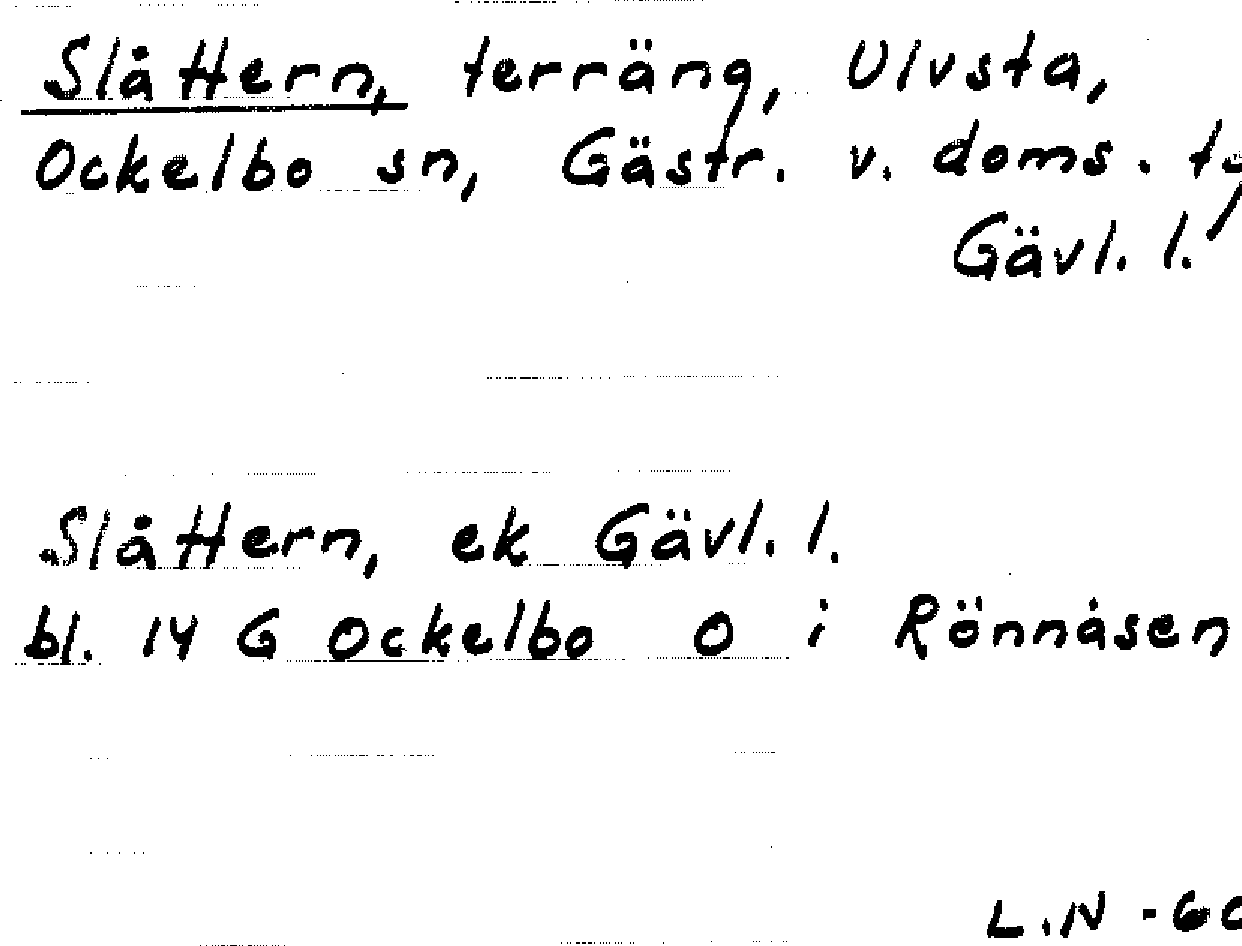 Slåttern, terräng, Ulvsta,
Ockelbo sn, Gästr. v. doms.
Gävl. l.
Slåttern, ek Gävl. l.
bl. 14 G Ockelbo O i Rönnåsen
L.N